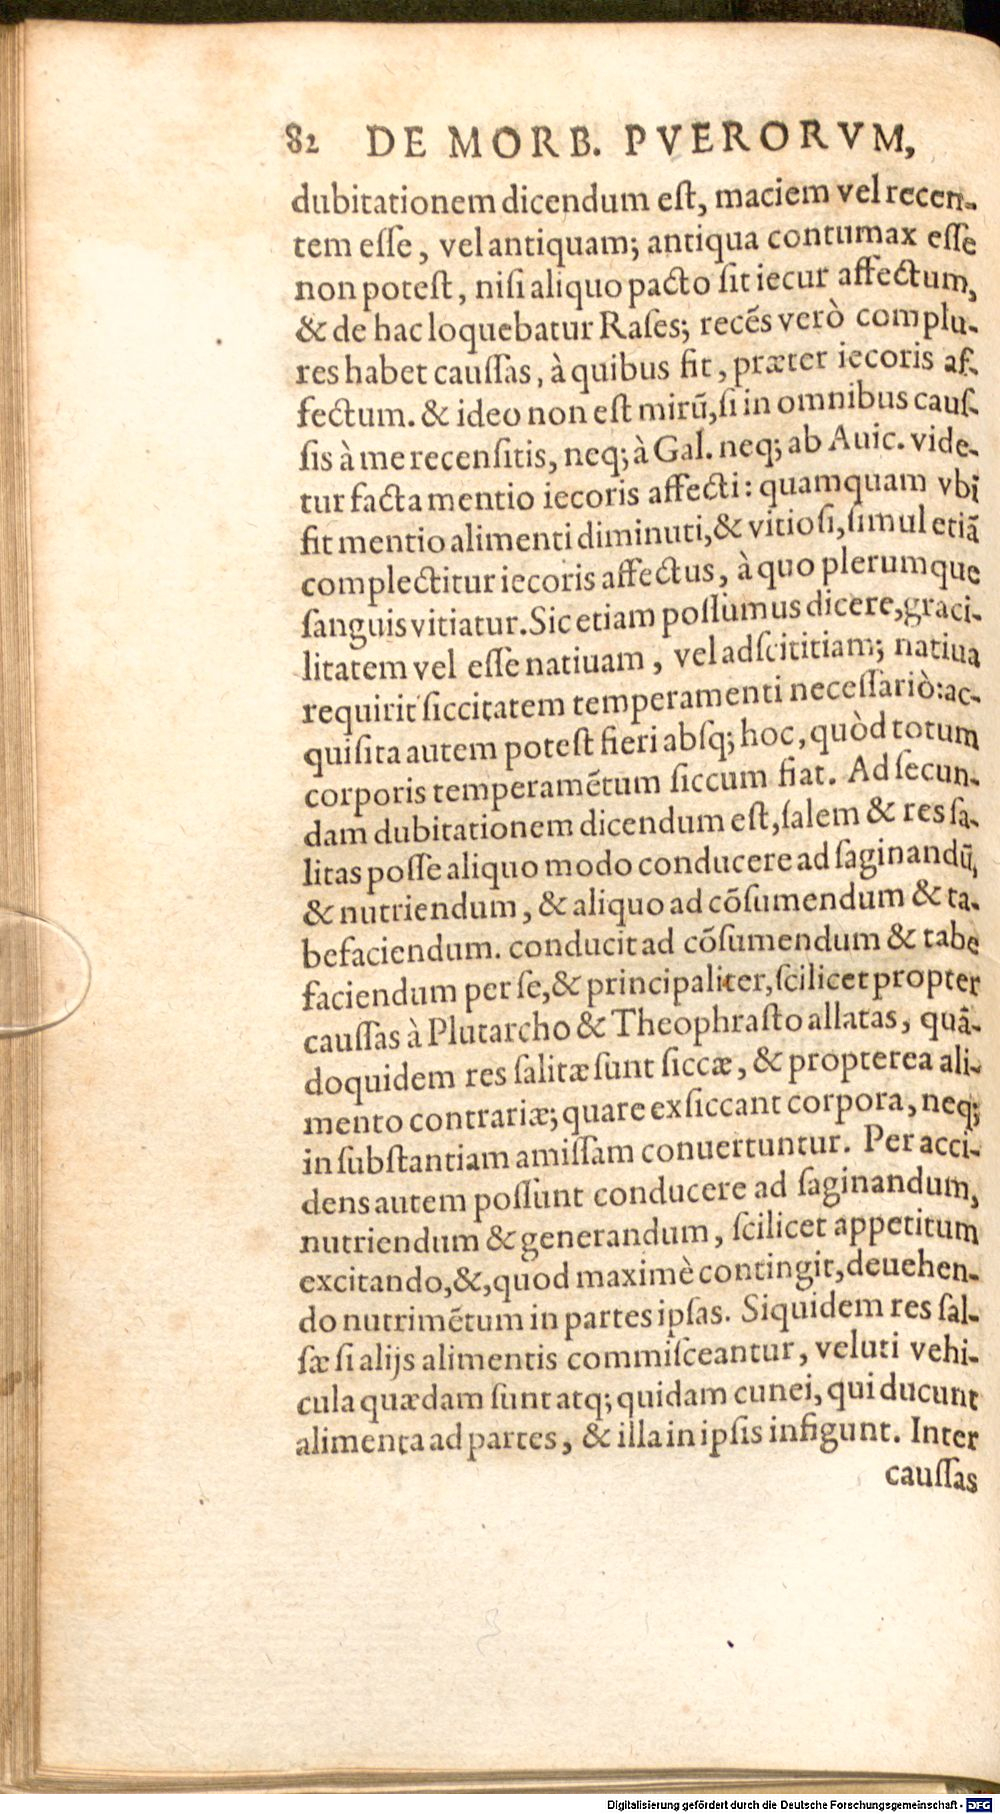 82 DE MORB. PVERORVM,
dubitationem dicendum eſt, maciem vel recen-
tem eſſe, vel antiquam; antiqua contumax eſſe
non poteſt, niſi aliquo pacto ſit iecur affectum,
& de hac loquebatur Raſes; recẽs verò complu-
res habet cauſſas, à quibus fit, præter iecoris af-
fectum. & ideo non eſt mirũ, ſi in omnibus cauſ-
ſis à me recenſitis, neq; à Gal. neq; ab Auic. vide-
tur facta mentio iecoris affecti: quamquam vbi
fit mentio alimenti diminuti, & vitioſi, ſimul etiã
complectitur iecoris affectus, à quo plerumque
ſanguis vitiatur. Sic etiam poſſumus dicere, graci-
litatem vel eſſe natiuam, vel adſcititiam; natiua
requirit ſiccitatem temperamenti neceſſariò: ac-
quiſita autem poteſt fieri abſq; hoc, quòd totum
corporis temperamẽtum ſiccum fiat. Ad ſecun-
dam dubitationem dicendum eſt, ſalem & res ſa-
litas poſſe aliquo modo conducere ad ſaginandũ,
& nutriendum, & aliquo ad cõſumendum & ta-
befaciendum. conducit ad cõſumendum & tabe
faciendum per ſe, & principaliter, ſcilicet propter
cauſſas à Plutarcho & Theophraſto allatas, quã-
doquidem res ſalitæ ſunt ſiccæ, & propterea ali-
mento contrariæ; quare exſiccant corpora, neq;
in ſubſtantiam amiſſam conuertuntur. Per acci-
dens autem poſſunt conducere ad ſaginandum,
nutriendum & generandum, ſcilicet appetitum
excitando, &, quod maximè contingit, deuehen-
do nutrimẽtum in partes ipſas. Siquidem res ſal-
ſæ ſi alijs alimentis commiſceantur, veluti vehi-
cula quædam ſunt atq; quidam cunei, qui ducunt
alimenta ad partes, & illa in ipſis infigunt. Inter
cauſſas
Digitalisierung gefördert durch die Deutsche Forschungsgemeinschaft - DFG